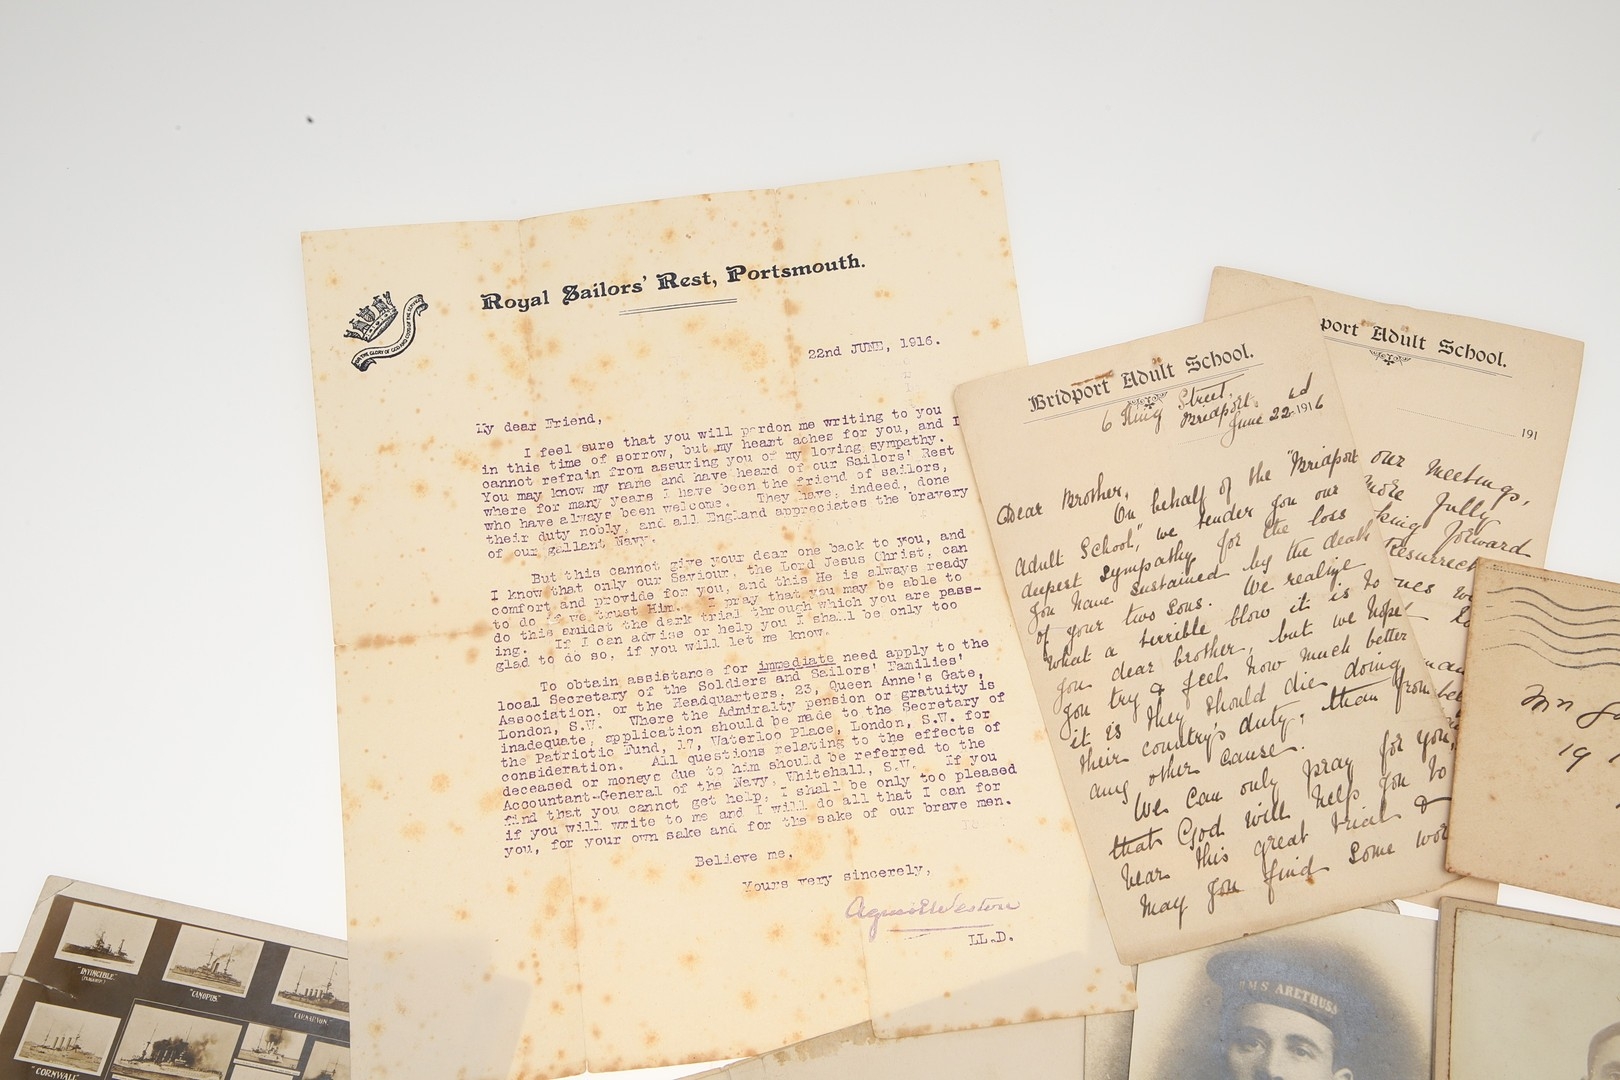 Royal Sailors' Rest, Portsmouth.
FOR THE GLORY OF GOD AND GOOD OF THE SERVICE
22nd JUNE, 1916.
My dear Friend,
I feel sure that you will pardon me writing to you
in this time of sorrow, but my heart aches for you, and I
cannot refrain from assuring you of my loving sympathy.
You may know my name and have heard of our Sailors' Rest
where for many years I have been the friend of sailors,
who have always been welcome. They have, indeed, done
their duty nobly, and all England appreciates the bravery
of our gallant Navy.
But this cannot give your dear one back to you, and
I know that only our Saviour, the Lord Jesus Christ, can
comfort and provide for you, and this He is always ready
to do if we trust Him. I pray that you may be able to
do this amidst the dark trial through which you are pass-
ing. If I can advise or help you I shall be only too
glad to do so, if you will let me know.
To obtain assistance for immediate need apply to the
local Secretary of the Soldiers and Sailors' Families'
Association, or the Headquarters, 23, Queen Anne's Gate,
London, S.W. Where the Admiralty pension or gratuity is
inadequate, application should be made to the Secretary of
the Patriotic Fund, 17, Waterloo Place, London, S.W. for
consideration. All questions relating to the effects of
deceased or moneys due to him should be referred to the
Accountant-General of the Navy, Whitehall, S.W. If you
find that you cannot get help, I shall be only too pleased
if you will write to me and I will do all that I can for
you, for your own sake and for the sake of our brave men.
Believe me,
Yours very sincerely,
Agnes E Weston
LL.D.
Bridport Adult School.
6 King Street,
Bridport.
June 22nd 1916
Dear Brother,
On behalf of the "Bridport
Adult School," we tender you our
deepest sympathy for the loss
you have sustained by the death
of your two sons. We realize
what a terrible blow it is to
you dear brother, but we hope
you try & feel how much better
it is they should die doing
their country's duty, than from
any other cause.
We can only pray for you,
that God will help you to
bear this great trial &
may you find some
port Adult School.
191
our meetings,
more fully
king forward
Resurrect
Mrs
19
"INVINCIBLE"
(FLAGSHIP)
"CANOPUS"
"CARNARVON"
"CORNWALL"
H.M.S ARETHUSA